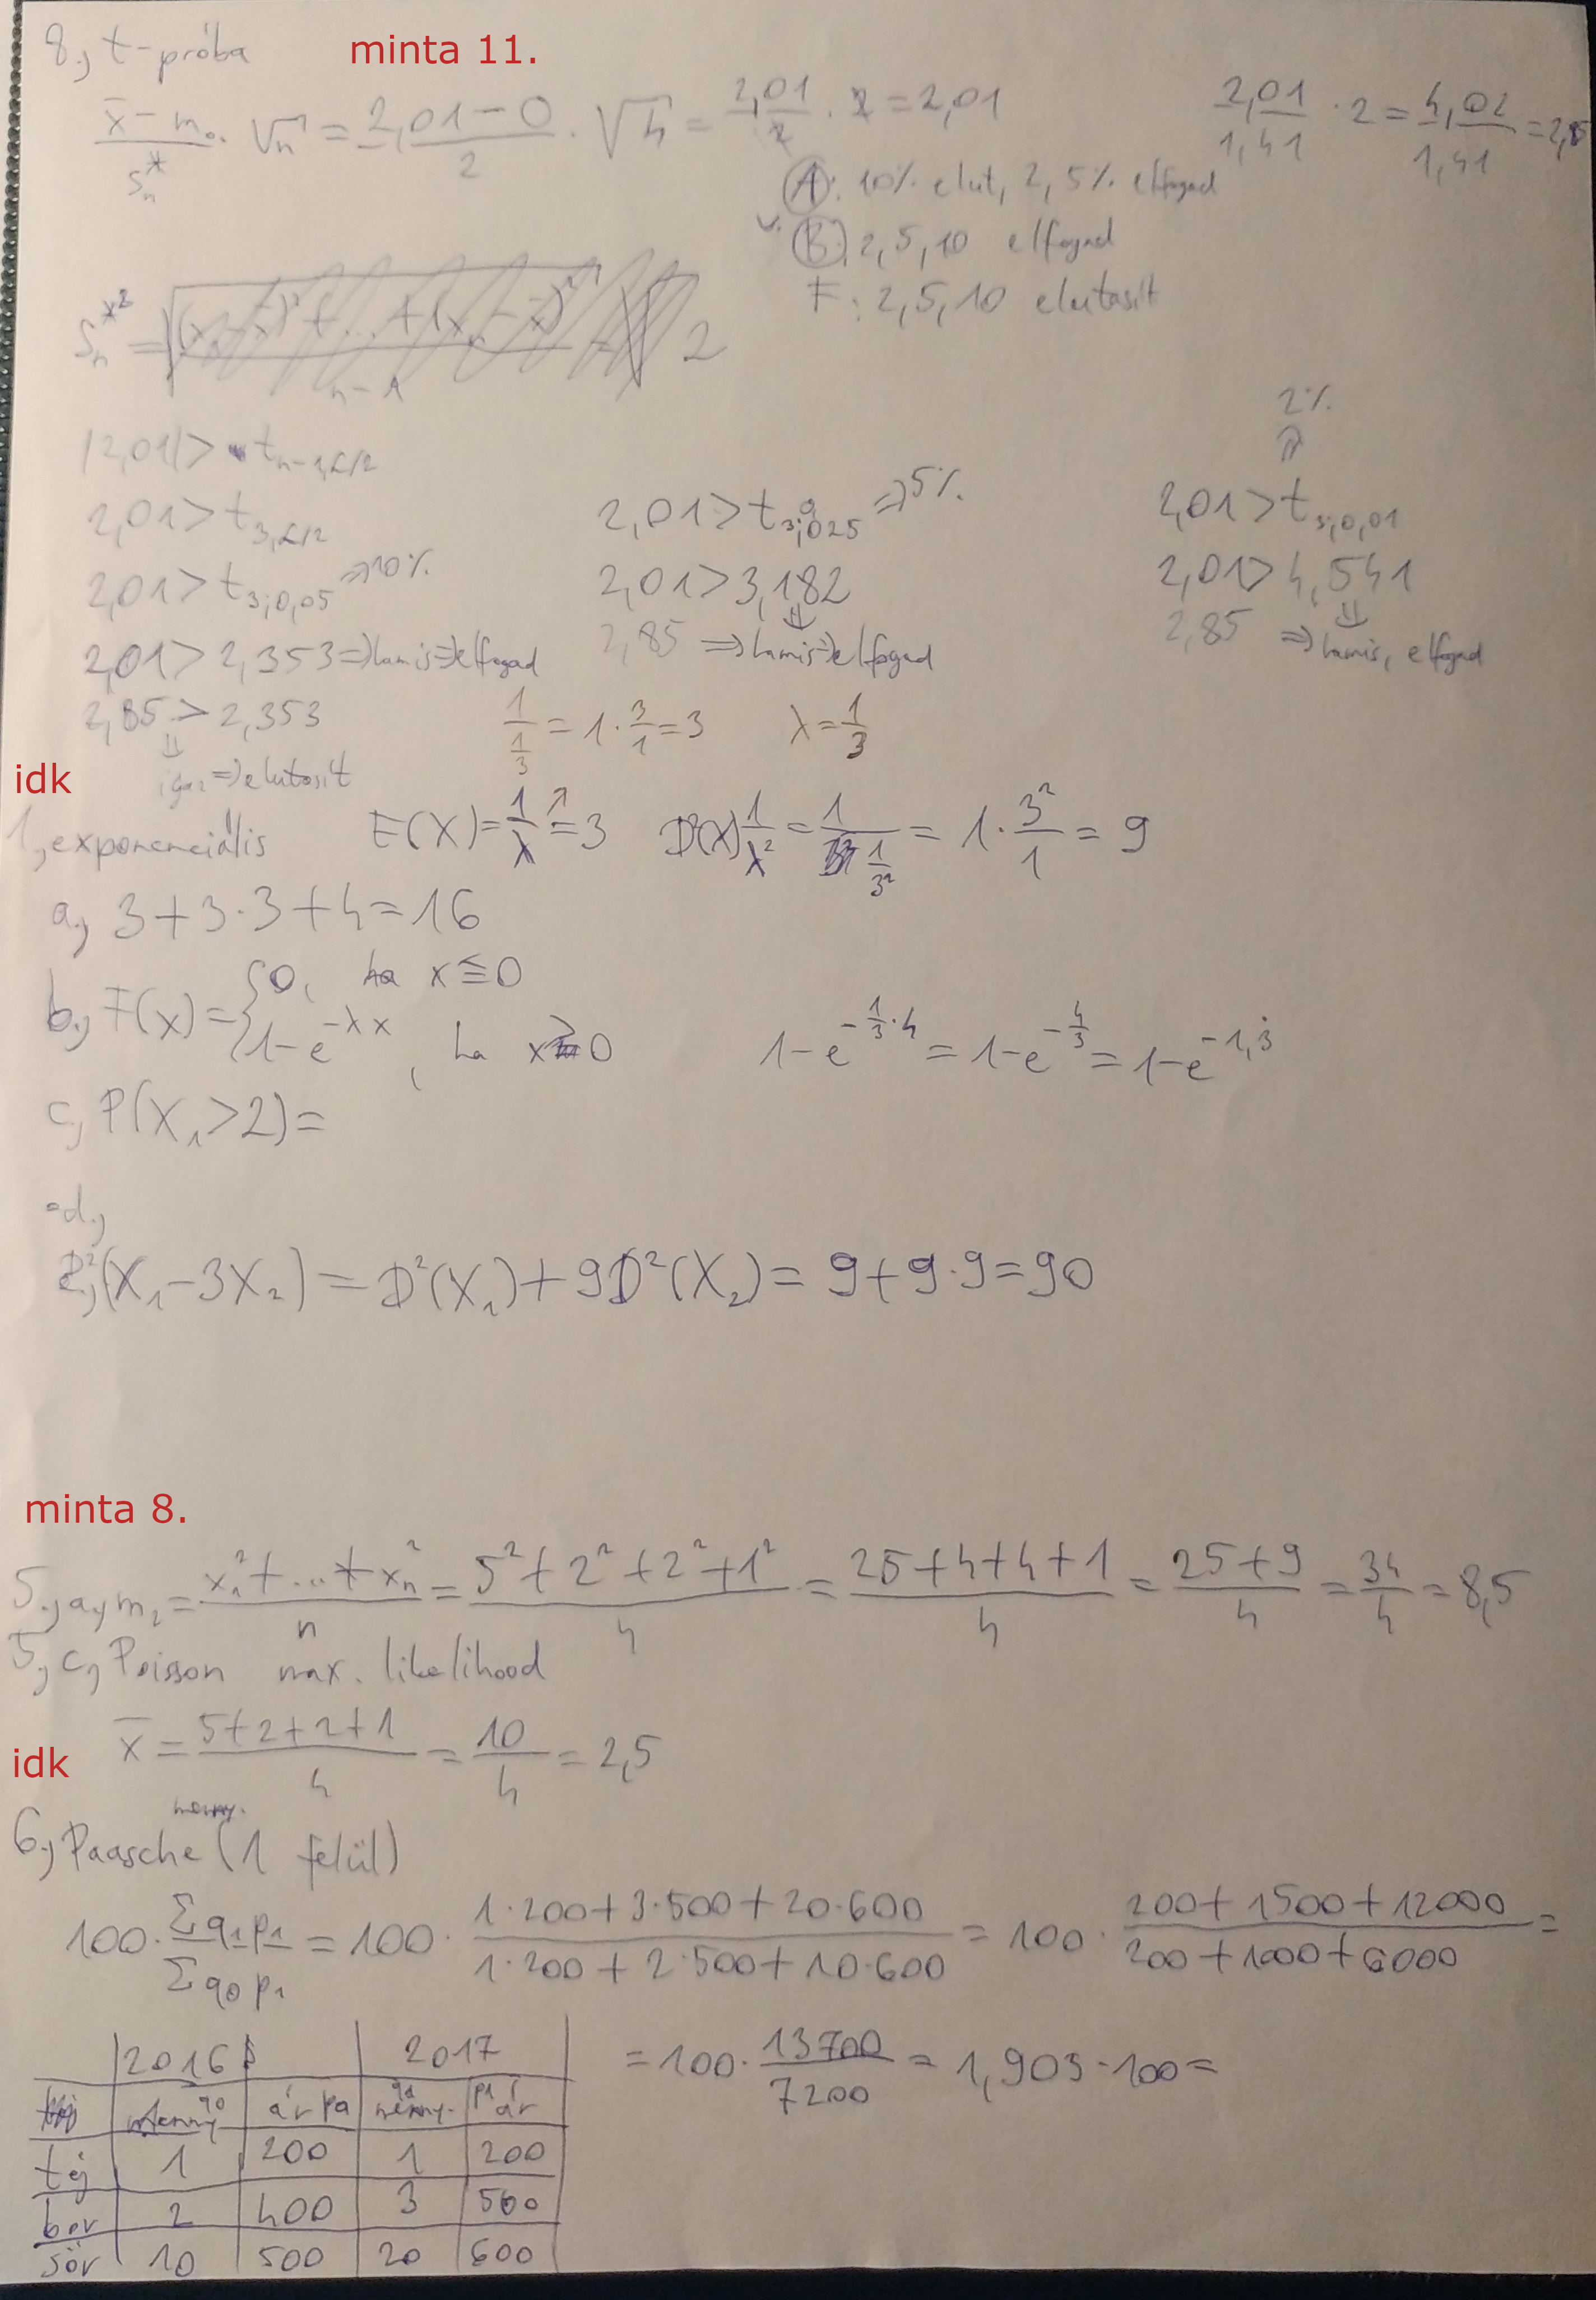 8., t-próba
minta 11.
(x̄ - m₀)/sₙ* · √n = (2,01 - 0)/2 · √4 = 2,01/2 · 2 = 2,01
2,01/1,41 · 2 = 4,02/1,41 = 2,85
A: 10% elut, 2, 5% elfogad
v. B: 2, 5, 10 elfogad
F: 2, 5, 10 elutasít
sₙ*² = √((x₁ - x̄)² + ... + (xₙ - x̄)²)/(n-1) = 2
|2,01| > t n-1,α/2
2,01 > t 3,α/2
2,01 > t 3;0,05 ⇒ 10%
2,01 > 2,353 ⇒ hamis ⇒ elfogad
2,85 > 2,353
⇓
igaz ⇒ elutasít
2,01 > t 3;0,025 ⇒ 5%
2,01 > 3,182
⇓
2,85 ⇒ hamis ⇒ elfogad
2%
⇑
2,01 > t 3;0,01
2,01 > 4,541
⇓
2,85 ⇒ hamis, elfogad
1/(1/3) = 1 · 3/1 = 3 λ = 1/3
idk
1, exponenciális E(X) = 1/λ = 3 D²(X) 1/λ² = 1/(1/3²) = 1 · 3²/1 = 9
a., 3 + 3·3 + 4 = 16
b., F(x) = { 0, ha x ≤ 0
1 - e^(-λx), ha x > 0
1 - e^(-1/3·4) = 1 - e^(-4/3) = 1 - e^(-1,3̇)
c., P(X₁ > 2) =
d.,
D²(X₁ - 3X₂) = D²(X₁) + 9D²(X₂) = 9 + 9·9 = 90
minta 8.
5., a., m₂ = (x₁² + ... + xₙ²)/n = (5² + 2² + 2² + 1²)/4 = (25 + 4 + 4 + 1)/4 = (25 + 9)/4 = 34/4 = 8,5
5., c., Poisson max. likelihood
x̄ = (5 + 2 + 2 + 1)/4 = 10/4 = 2,5
idk
6., Paasche (1 felül)
100 · Σq₁p₁/Σq₀p₁ = 100 · (1·200 + 3·500 + 20·600)/(1·200 + 2·500 + 10·600) = 100 · (200 + 1500 + 12000)/(200 + 1000 + 6000) =
= 100 · 13700/7200 = 1,903 · 100 =
2016 2017
menny. q₀ ár p₀ menny. q₁ ár p₁
tej 1 200 1 200
bor 2 400 3 500
sör 10 500 20 600